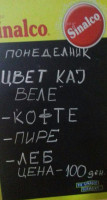 Sinalco
Sinalco
ПОНЕДЕЛНИК
ЦВЕТ КАЈ
ВЕЛЕ
-КОФТЕ
-ПИРЕ
-ЛЕБ
ЦЕНА-100 ден.